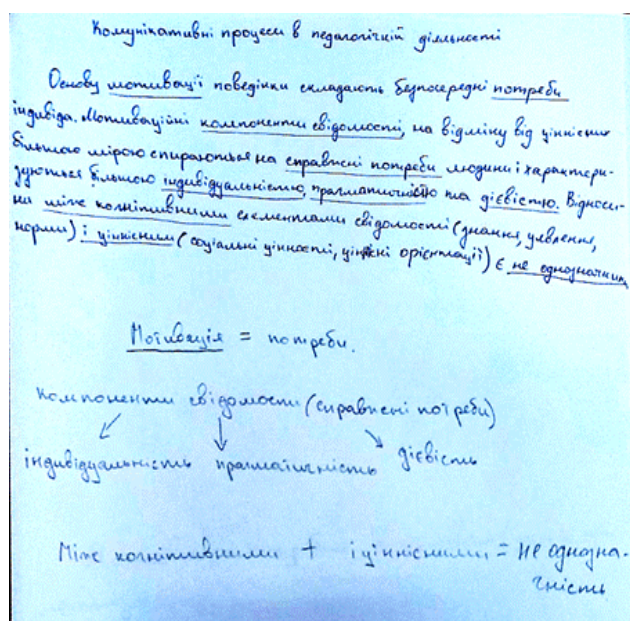 Комунікативні процеси в педагогічній діяльності
Основу мотивації поведінки складають безпосередні потреби
індивіда. Мотиваційні компоненти свідомості, на відміну від ціннісних
більшою мірою спираються на справжні потреби людини і характери-
зуються більшою індивідуальністю, прагматичністю та дієвістю. Відноси-
ни між когнітивними елементами свідомості (знання, уявлення,
норми) і ціннісним (соціальні цінності, ціннісні орієнтації) є не однозначним
Мотивація = потреби.
Компоненти свідомости (справжні потреби)
індивідуальність прагматичність дієвість
Між когнітивними + і ціннісними = не однозна-
чність